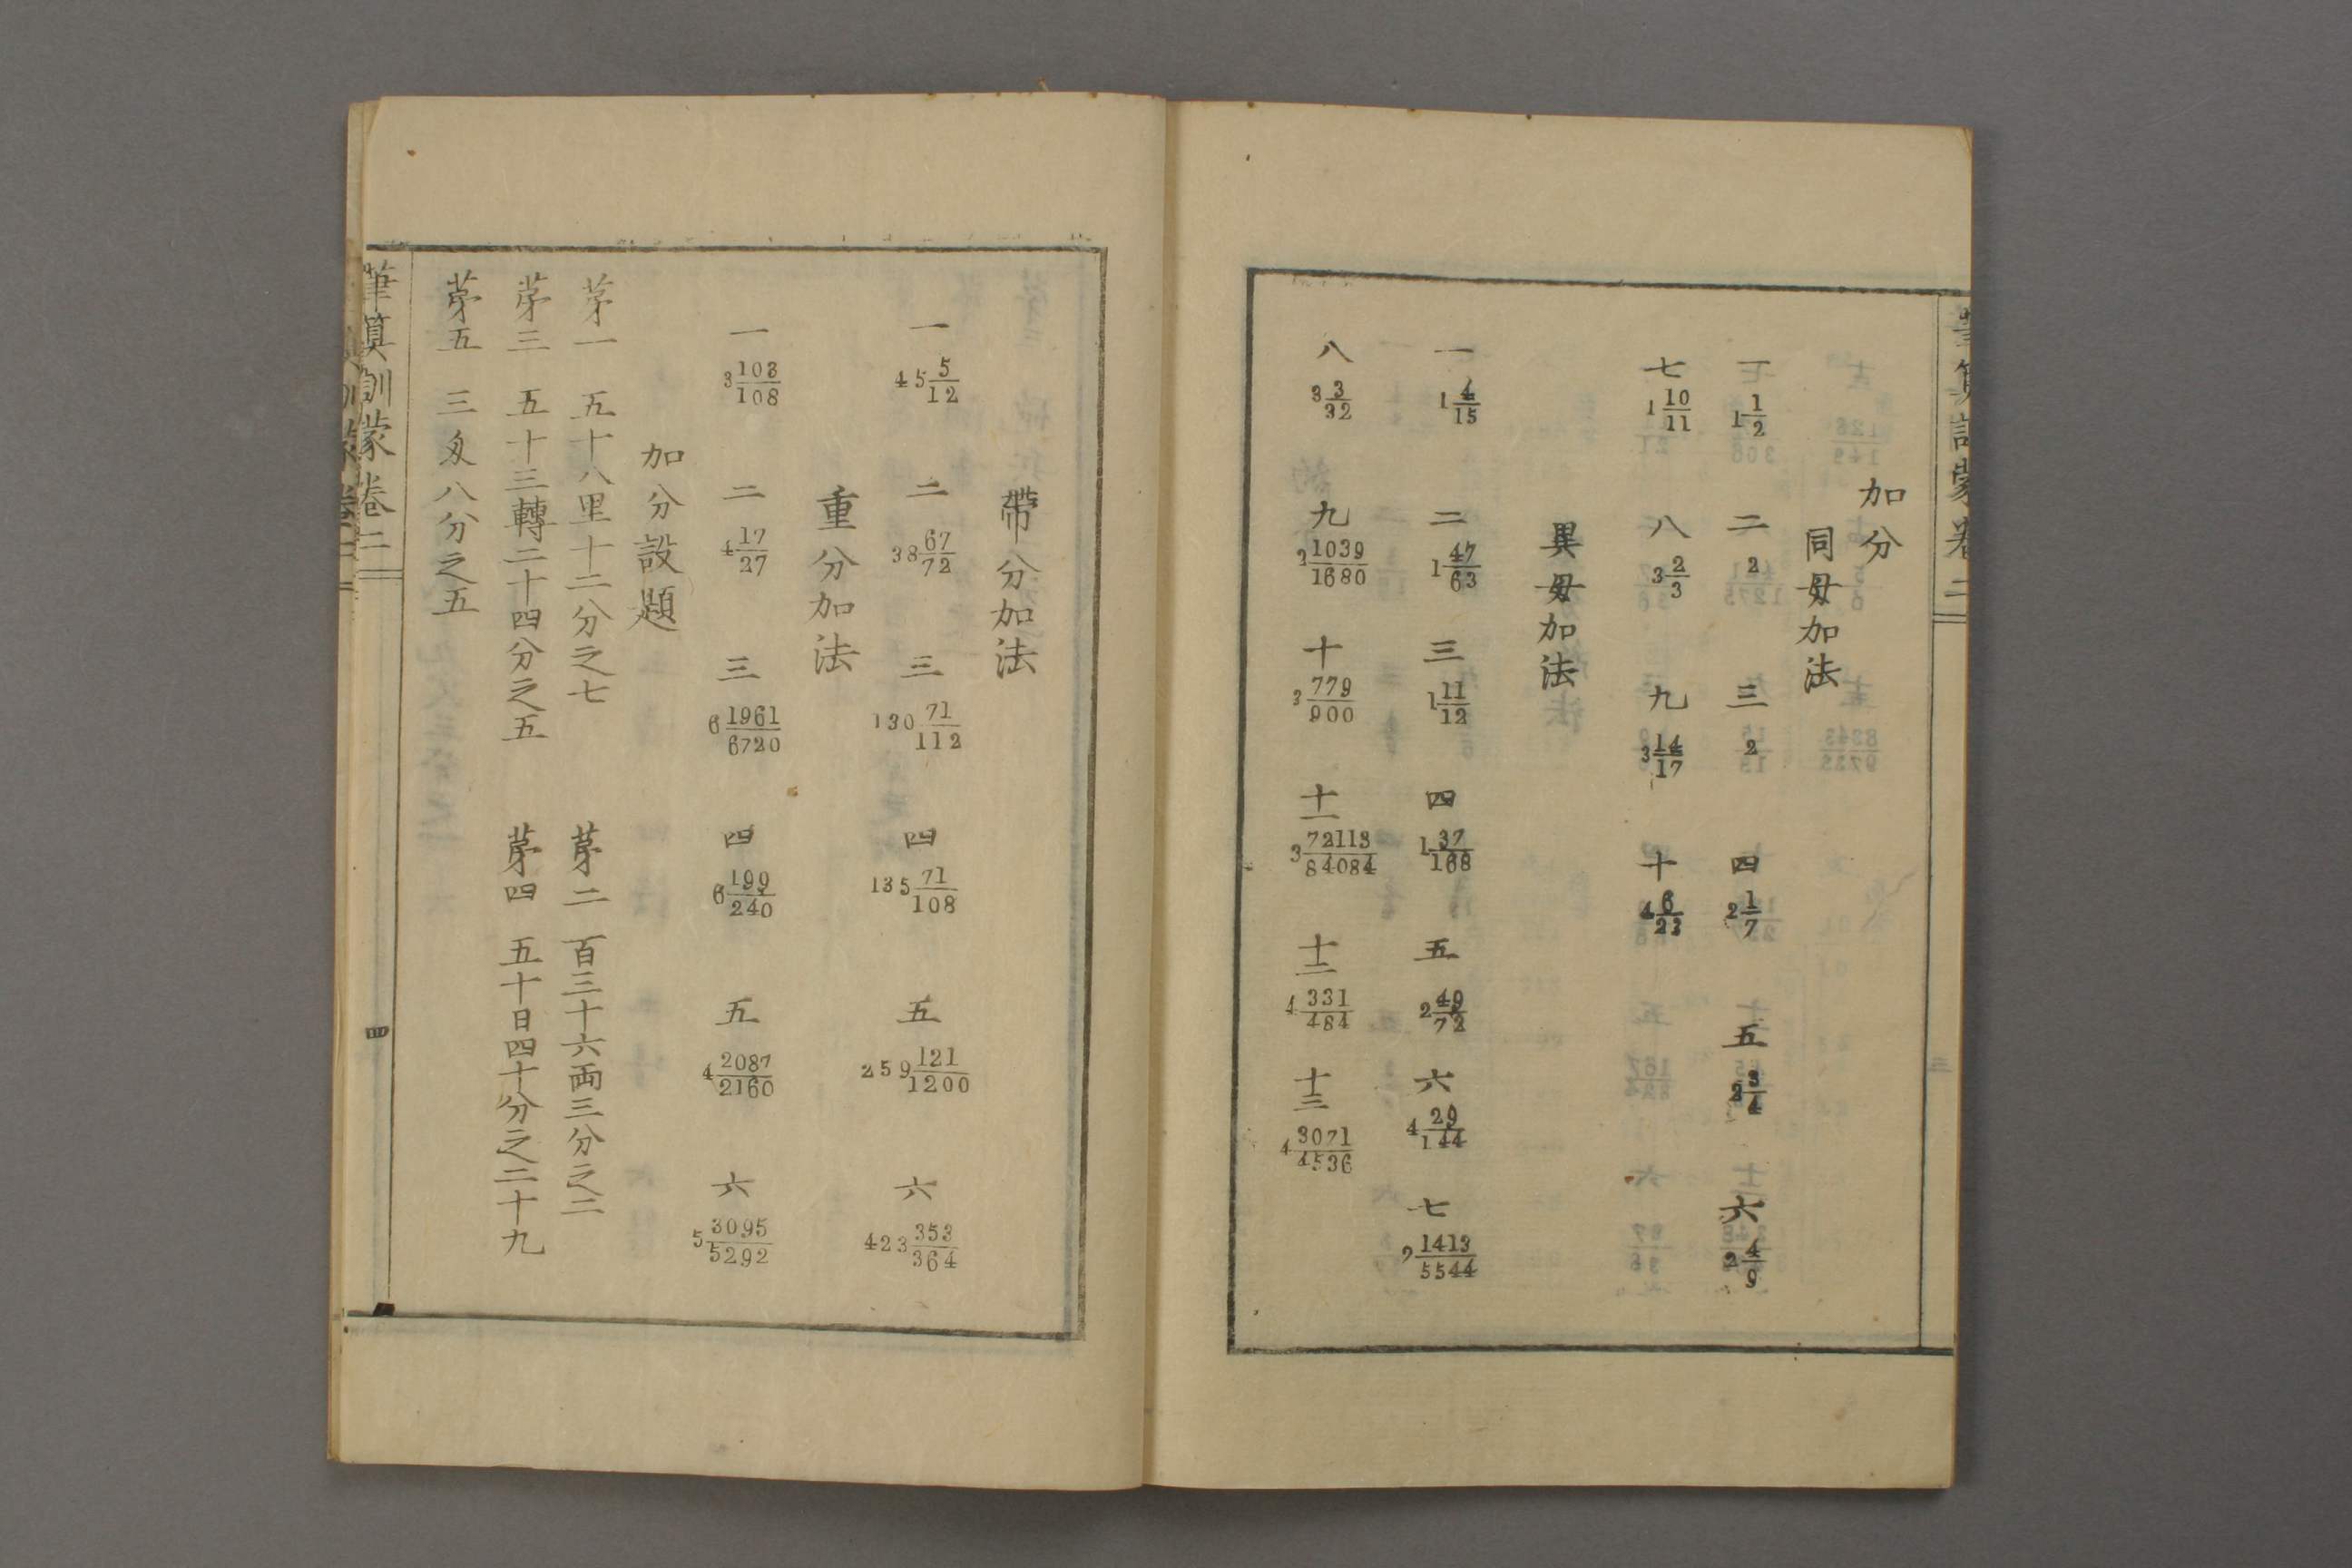 筆算訓蒙卷二
加分
同母加法
一 1 1/2 二 2 三 2 四 2 1/7 五 2 3/4 六 2 4/9
七 1 10/11 八 3 2/3 九 3 14/17 十 4 6/23
異母加法
一 1 4/15 二 1 47/63 三 1 11/12 四 1 37/168 五 2 49/72 六 4 29/144 七 2 1413/5544
八 3 3/32 九 2 1039/1680 十 3 779/900 十一 3 72113/84084 十二 4 331/484 十三 4 3071/4536
帶分加法
一 45 5/12 二 38 67/72 三 130 71/112 四 135 71/108 五 259 121/1200 六 423 353/364
重分加法
一 3 103/108 二 4 17/27 三 6 1961/6720 四 6 199/240 五 4 2087/2160 六 5 3095/5292
加分設題
苐一 五十八里十二分之七 苐二 百三十六両三分之二
苐三 五十三轉二十四分之五 苐四 五十日四十分之二十九
苐五 三㐅八分之五
筆算訓蒙卷二 四